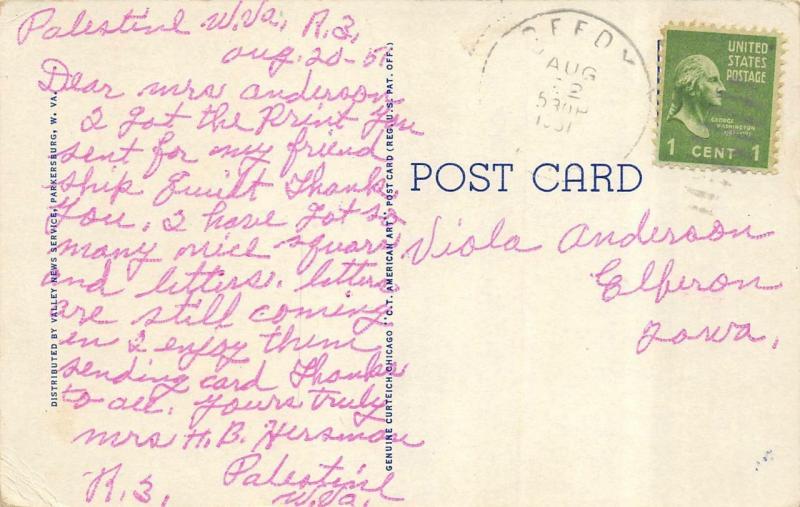 Palestine W.Va, R.3,
aug. 20-5
Dear mrs anderson
I got the Print You
sent for my friend
ship Quilt Thanks
You, I have got so
many nice square
and letters. letters
are still coming
in I enjoy them
sending card Thanks
to all. yours truly
mrs H. B. Hersman
R. 3, Palestine
W.Va.
DISTRIBUTED BY VALLEY NEWS SERVICE, PARKERSBURG, W. VA.
GENUINE CURTEICH-CHICAGO "C.T. AMERICAN ART" POST CARD (REG. U.S. PAT. OFF.)
POST CARD
Viola Anderson
Elberon
Iowa,
AUG
1951
UNITED
STATES
POSTAGE
GEORGE
WASHINGTON
1 CENT 1